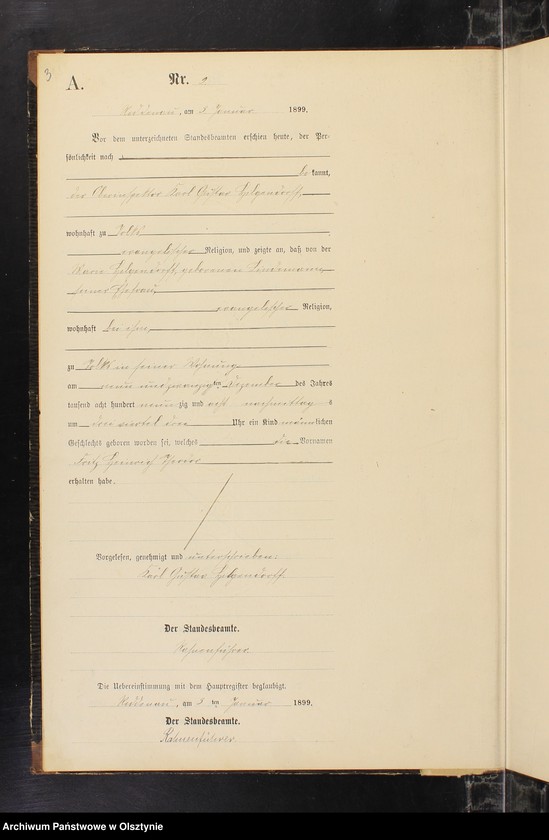 3
A.
Nr. 2
am 3 Januar 1899.
Vor dem unterzeichneten Standesbeamten erschien heute, der Per-
sönlichkeit nach
be kannt,
der Karl Gustav Helgendorff,
wohnhaft zu Polkk
evangelischer Religion, und zeigte an, daß von der
Helgendorff, geborenen Lindemann,
seiner Ehefrau,
evangelischer Religion,
wohnhaft bei ihm,
zu in seiner Wohnung
am neun und zwanzig ten Dezember des Jahres
tausend acht hundert neun zig und acht nachmittag s
um drei viertel drei Uhr ein Kind männlichen
Geschlechts geboren worden sei, welches die Vornamen
Fritz Heinrich
erhalten habe.
Vorgelesen, genehmigt und unterschrieben:
Karl Gustav Helgendorff
Der Standesbeamte.
Kahnenführer
Die Uebereinstimmung mit dem Hauptregister beglaubigt.
am 3 ten Januar 1899.
Der Standesbeamte.
Kahnenführer
Archiwum Państwowe w Olsztynie